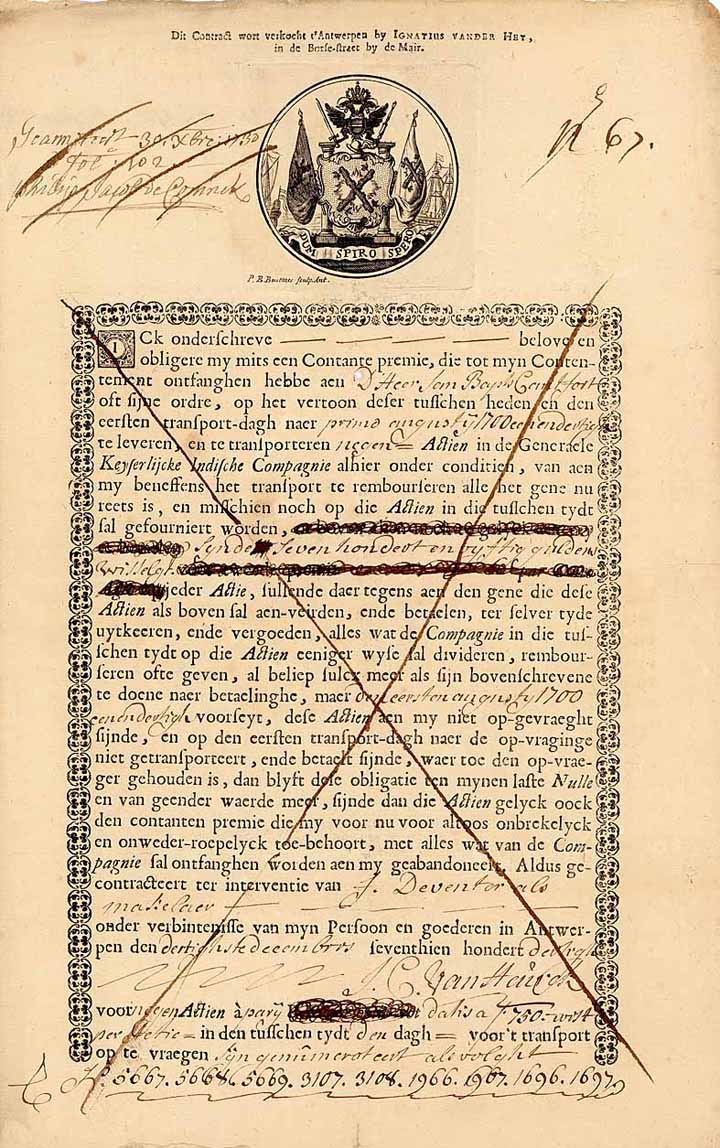 Dit Contract wort verkocht t'Antwerpen by IGNATIUS VANDER HEY,
in de Borse-straet by de Mair.
30 Xbre 1730
fol: 102
Nº 67.
DUM SPIRO SPERO
P. B. Bouttats sculp. Ant.
ICk onderschreve belove en
obligere my mits een Contante premie, die tot myn Conten-
tement ontfanghen hebbe aen D'Heer Jean Bapte
oft sijne ordre, op het vertoon deser tusschen heden en den
eersten transport-dagh naer primo augusty 1700 eenendertich
te leveren, en te transporteren negen Actien in de Generaele
Keyserlijcke Indische Compagnie alhier onder conditien, van aen
my beneffens het transport te rembourseren alle het gene nu
reets is, en misschien noch op die Actien in die tusschen tydt
sal gefourniert worden,
synde seven hondert en vyftig guldens
wisselgt
ieder Actie, sullende daer tegens aen den gene die dese
Actien als boven sal aen-veirden, ende betaelen, ter selver tyde
uytkeeren, ende vergoeden, alles wat de Compagnie in die tus-
schen tydt op die Actien eeniger wyse sal divideren, rembour-
seren ofte geven, al beliep sulcx meer als sijn bovenschrevene
te doene naer betaelinghe, maer den eersten augusty 1700
eenendertigh voorseyt, dese Actien aen my niet op-gevraeght
sijnde, en op den eersten transport-dagh naer de op-vraginge
niet getransporteert, ende betaelt sijnde, waer toe den op-vrae-
ger gehouden is, dan blyft dese obligatie ten mynen laste Nulle
en van geender waerde meer, sijnde dan die Actien gelyck oock
den contanten premie die my voor nu voor altoos onbrekelyck
en onweder-roepelyck toe-behoort, met alles wat van de Com-
pagnie sal ontfanghen worden aen my geabandoneert. Aldus ge-
contracteert ter interventie van J. Deventer als
makelaer
onder verbintenisse van myn Persoon en goederen in Antwer-
pen den dertighste decembris seventhien hondert dertigh
J. C. Van Heurck
voor negen Actien à parij dat is a f 750 - wist
per Actie in den tusschen tydt den dagh voor't transport
op te vraegen syn genumeroteert als volght
Nº 5667. 5668. 5669. 3107. 3108. 1966. 1967. 1696. 1697